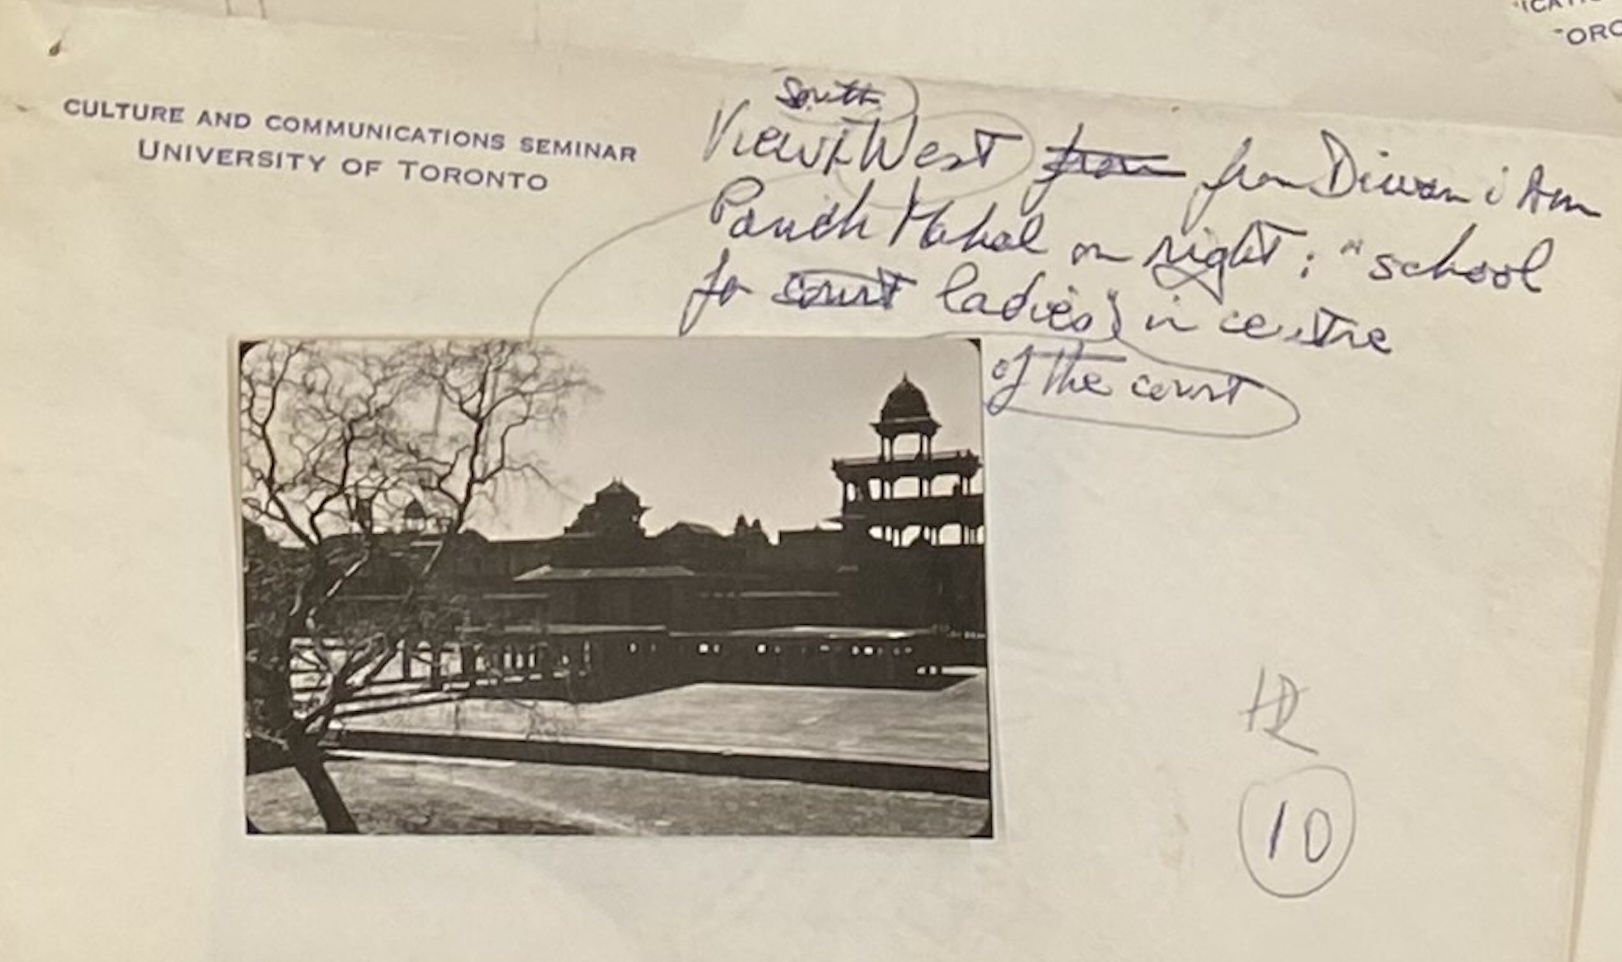 CULTURE AND COMMUNICATIONS SEMINAR
UNIVERSITY OF TORONTO
South
View West from from Diwan i Am
Panch Mahal on right; "school
for court ladies" in centre
of the court
10
ORO